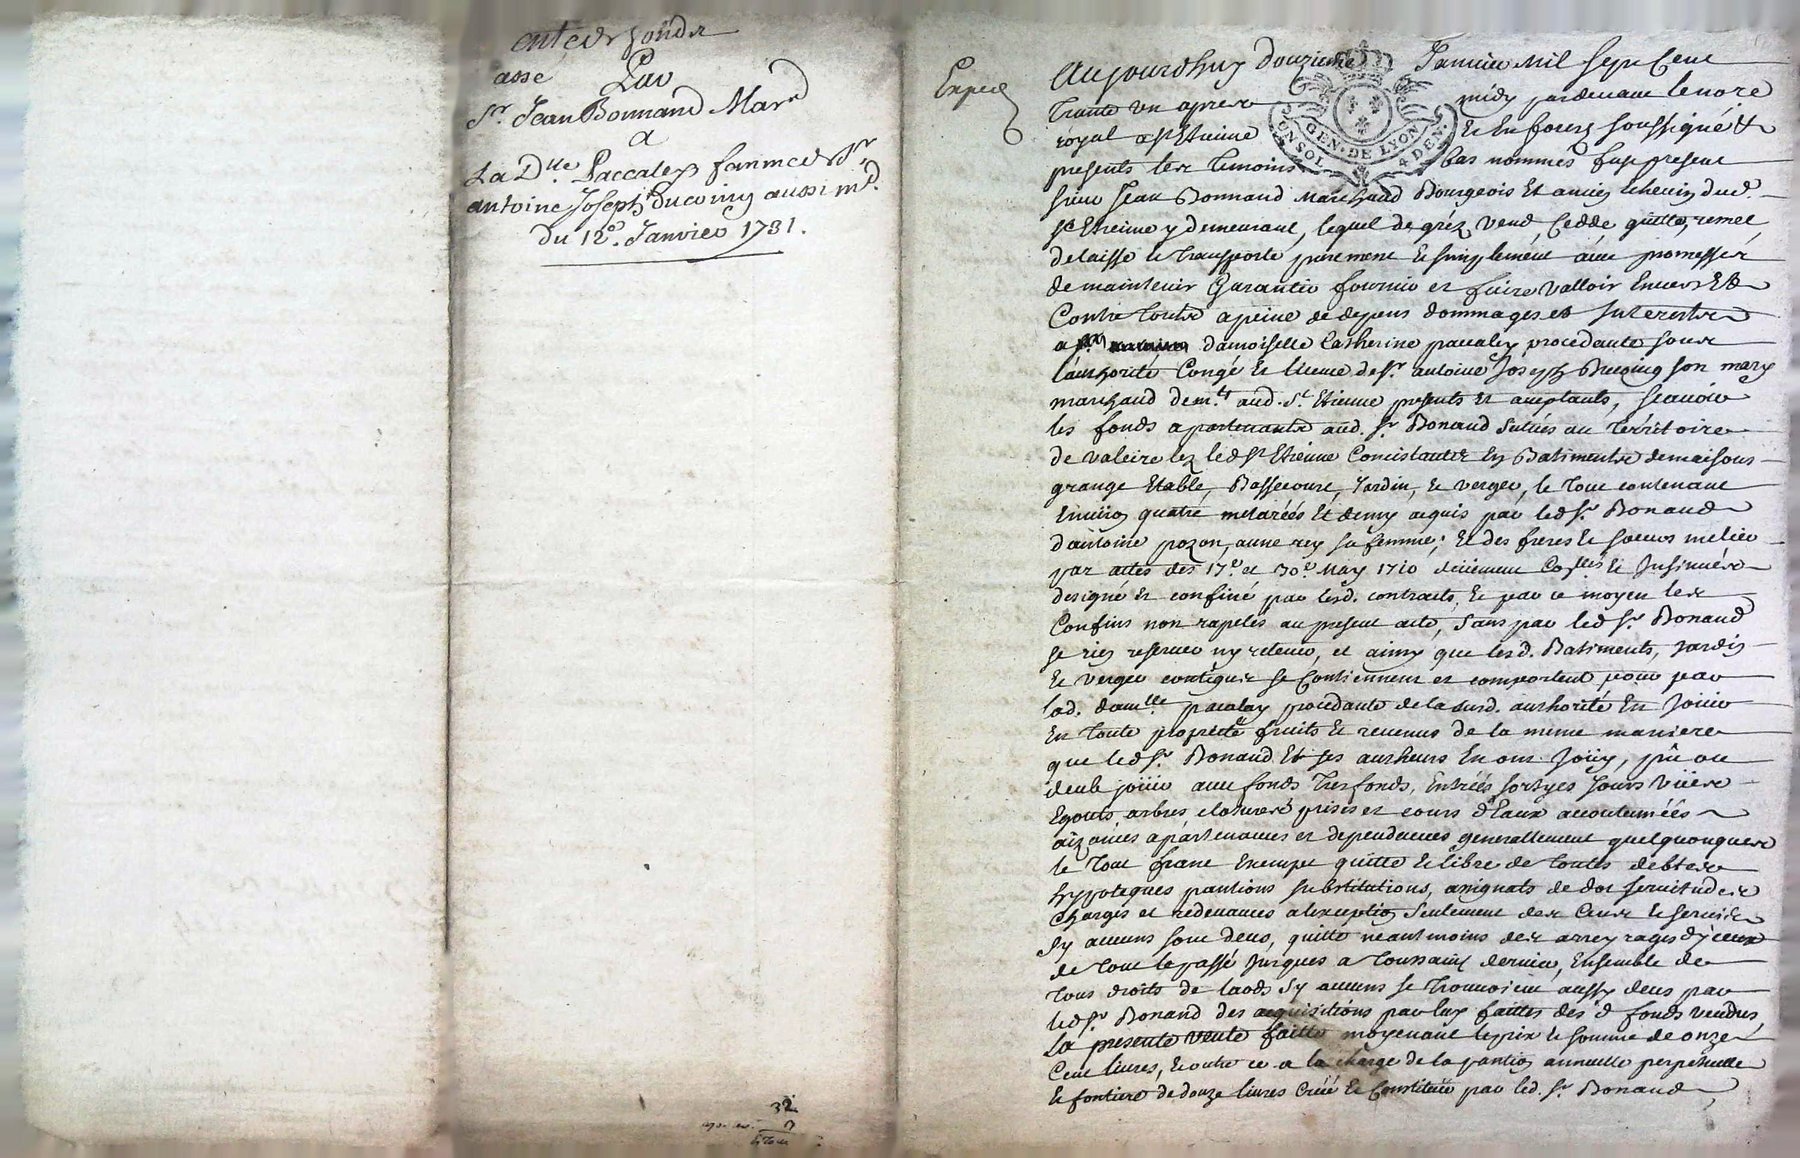 ente de fonds
assé
Par
Sr. Jean Bonnand Mard
a
La Dlle Paccaley famme de Sr
antoine Joseph Ducoing aussi md.
du 12e. Janvier 1731.
32
Exped
Aujourdhuy douzieme Janvier Mil Sept Cent
Trante un apres midy pardevant le nore
royal a St Etienne En forez soussigné &
presents les temoins bas nommés fust present
GEN. DE LYON
UN SOL 4 DEN.
sieur Jean Bonnand Marchand Bourgeois Et ancien Echevin dud.
St Etienne y demeurant, lequel de gréz vend, Cedde quitte, remet
delaisse et transporte purement et simplement avec promesse
de maintenir Garantir fournir et faire valloir Envers Et
Contre toutes a peine de depens dommages et Interests
a damoiselle Catherine paccaley procedante sous
l'authorité Congé et licence de Sr. antoine Joseph Ducoing son mary
marchand demts. aud. St. Etienne presents et aceptants, scavoir
les fonds apartenants aud. Sr Bonand situés au territoire
de valeire lez led St Etienne Concistants En Batiments de maisons
grange Etable, Bassecourt, Jardin, et verger, le tout contenant
Environ quatre metarées Et demy aquis par led Sr. Bonand
d'antoine pozon, anne rey sa femme, Et des freres et soeurs
par actes des 17e. et 30e. May 1710 deüement et Insinués
designé et confiné par lesd. contracts, et par ce moyen les
Confins non rapelés au present acte, sans par led Sr. Bonand
se rien reserver ny retenir, et ainsy que lesd. Batiments, jardin
et verger contigus se Contiennent et comportent pour par
lad. damlle paccaley procedante de la susd. authorité En Joüir
En toute proprieté fruits et revenus de la meme maniere
que led Sr. Bonand Et ses autheurs En ont Joüy, pû ou
deub joüir avec fonds tresfonds, Entrées sortyes Jours vües
Egouts arbres clotures prises et cours d'Eaux accoutumées
aizances apartenances et dependances generallement quelquonques
le tout franc Exempt quitte et libre de toutes debtes
hypoteques pantions substitutions, assignats de dot servitudes
Charges et redevances a l'exception seulement des Cens et servis
sy aucuns sont deus, quitte neantmoins des arreyrages d'yceux
de tout le passé Jusques a Toussaint dernier, Ensemble de
tous droits de laods sy aucuns se trouvoient aussy deus par
led Sr Bonand des acquisitions par luy faittes des d fonds vendus
La presente vente faitte moyenant le prix et somme de onze
Cent livres, Et outre ce a la charge de la pantion annuelle perpetuelle
et fontiere de douze livres Créé et Constituée par led. Sr. Bonand